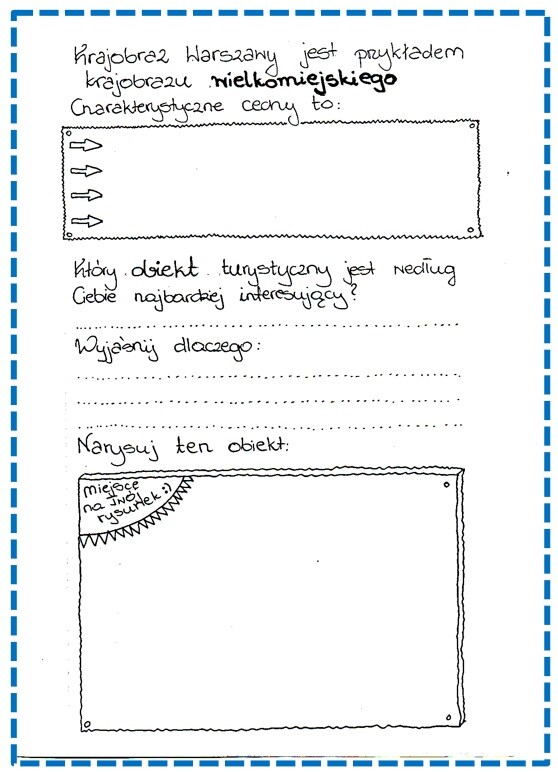 Krajobraz Warszawy jest przykładem
krajobrazu wielkomiejskiego
Charakterystyczne cechy to:
Który obiekt turystyczny jest według
Ciebie najbardziej interesujący?
Wyjaśnij dlaczego:
Narysuj ten obiekt:
miejsce
na TWÓJ
rysunek :)